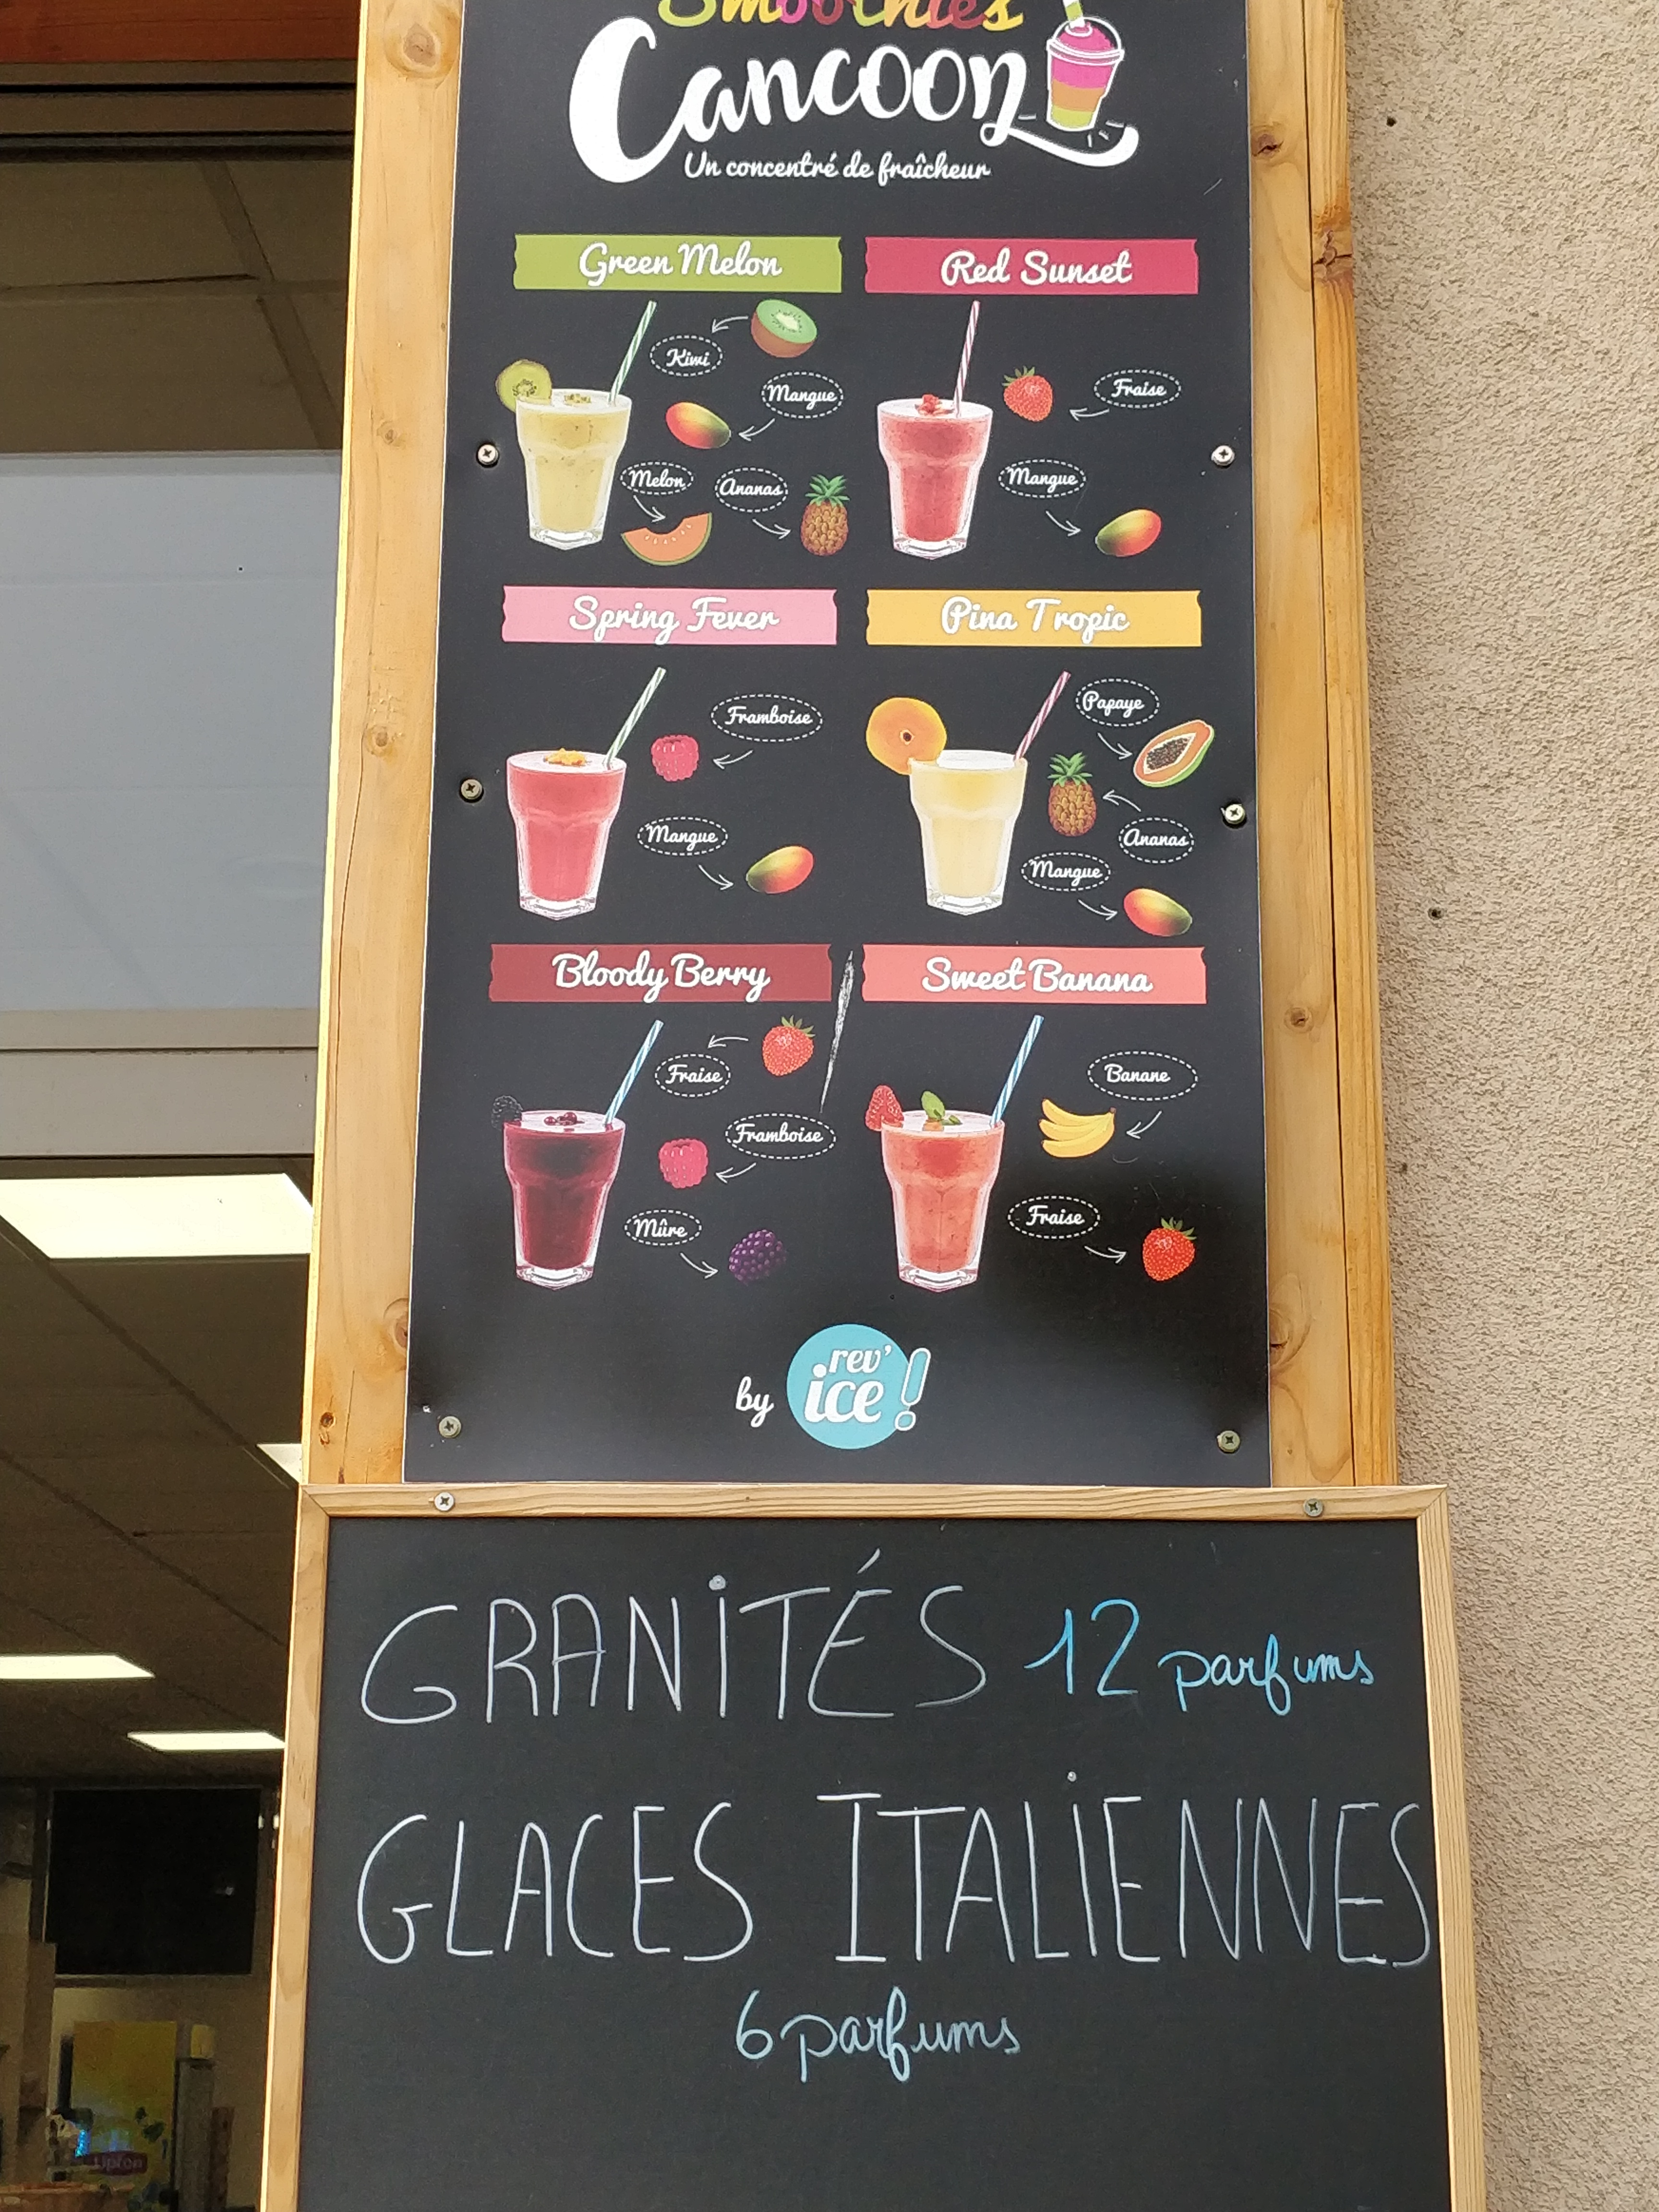 Smoothies
Cancoon
Un concentré de fraîcheur
Green Melon
Kiwi
Mangue
Melon
Ananas
Red Sunset
Fraise
Mangue
Spring Fever
Framboise
Mangue
Pina Tropic
Papaye
Ananas
Mangue
Bloody Berry
Fraise
Framboise
Mûre
Sweet Banana
Banane
Fraise
by rev'
ice!
GRANITÉS 12 parfums
GLACES ITALIENNES
6 parfums
Lipton